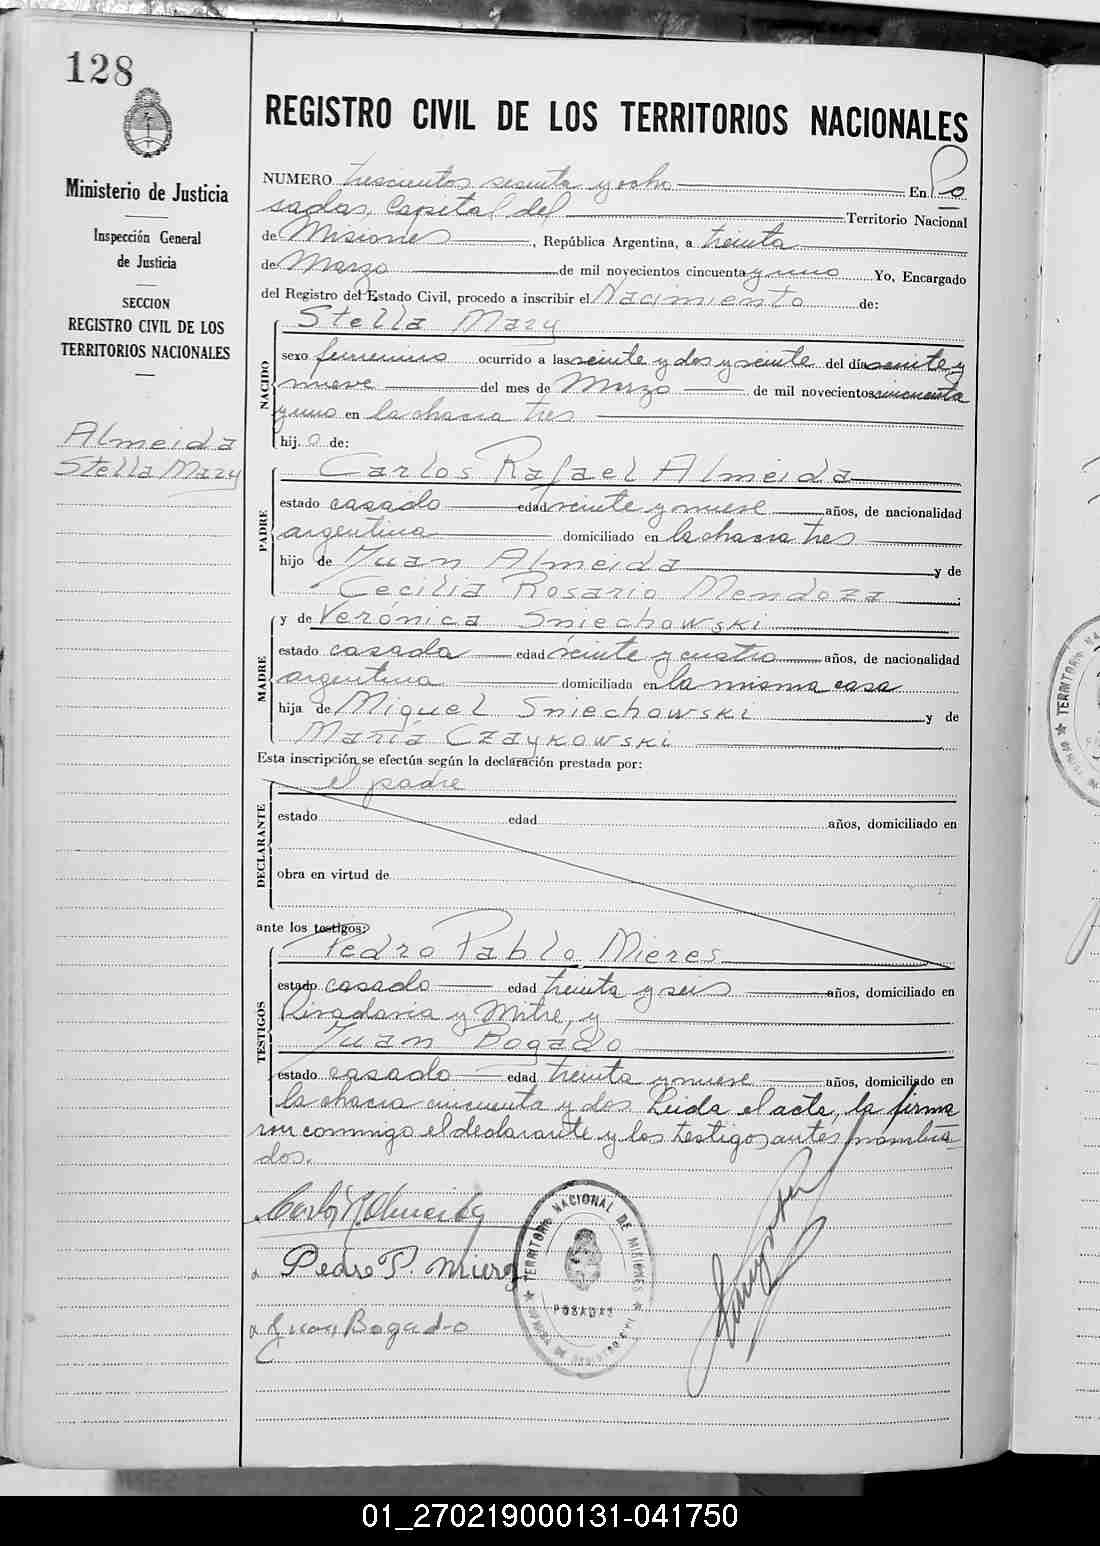 128
REGISTRO CIVIL DE LOS TERRITORIOS NACIONALES
Ministerio de Justicia
Inspección General
de Justicia
SECCION
REGISTRO CIVIL DE LOS
TERRITORIOS NACIONALES
Almeida
Stella Mary
NUMERO trescientos sesenta y ocho En Po
sadas, Capital del Territorio Nacional
de Misiones, República Argentina, a treinta
de Marzo de mil novecientos cincuenta y uno Yo, Encargado
del Registro del Estado Civil, procedo a inscribir el Nacimiento de:
NACIDO
Stella Mary
sexo femenino ocurrido a las veinte y dos y veinte del día veinte y
nueve del mes de Marzo de mil novecientos cincuenta
y uno en la chacra tres
hij. a de:
PADRE
Carlos Rafael Almeida
estado casado edad veinte y nueve años, de nacionalidad
argentina domiciliado en la chacra tres
hijo de Juan Almeida y de
Cecilia Rosario Mendoza;
MADRE
y de Verónica Sniechowski
estado casada edad veinte y cuatro años, de nacionalidad
argentina domiciliada en la misma casa
hija de Miguel Sniechowski y de
María Czaykowski
Esta inscripción se efectúa según la declaración prestada por:
DECLARANTE
el padre
estado edad años, domiciliado en
obra en virtud de
ante los testigos:
TESTIGOS
Pedro Pablo Mieres
estado casado edad treinta y seis años, domiciliado en
Rivadavia y Mitre, y
Juan Bogado
estado casado edad treinta y nueve años, domiciliado en
la chacra cincuenta y dos Leida el acta, la firma
ron conmigo el declarante y los testigos antes nombra-
dos.
Carlos R. Almeida
Pedro P. Mieres
Juan Bogado
TERRITORIO NACIONAL DE MISIONES
POSADAS
01_270219000131-041750